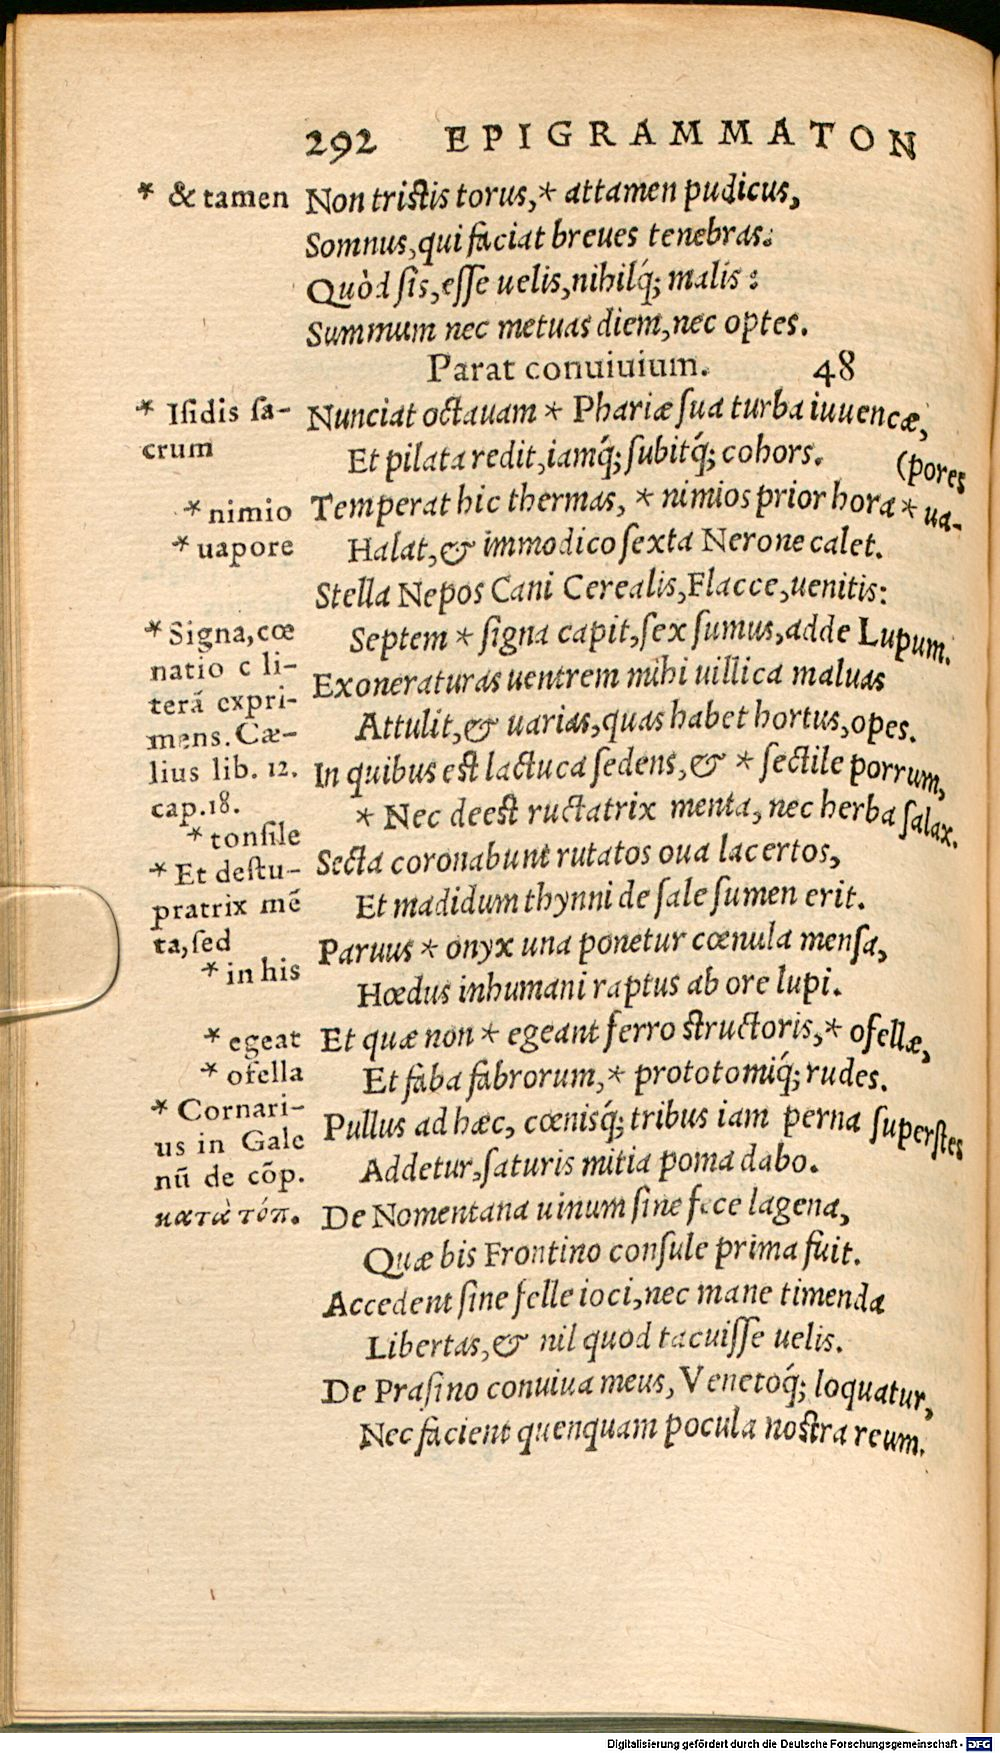 292 EPIGRAMMATON
* & tamen
Non tristis torus,* attamen pudicus,
Somnus,qui faciat breues tenebras:
Quòd sis,esse uelis,nihilq́; malis:
Summum nec metuas diem,nec optes.
Parat conuiuium. 48
* Isidis sa-
crum
Nunciat octauam * Phariæ sua turba iuuencæ,
Et pilata redit,iamq́; subitq́; cohors.
(pores
* nimio
* uapore
Temperat hic thermas, * nimios prior hora * ua-
Halat,& immodico sexta Nerone calet.
Stella Nepos Cani Cerealis,Flacce,uenitis:
* Signa,cœ
natio c li-
terā expri-
mens. Cæ-
lius lib. 12.
cap.18.
Septem * signa capit,sex sumus,adde Lupum.
Exoneraturas uentrem mihi uillica maluas
Attulit,& uarias,quas habet hortus,opes.
In quibus est lactuca sedens,& * sectile porrum,
* tonsile
* Et destu-
pratrix mē
ta,sed
* in his
* Nec deest ructatrix menta, nec herba salax.
Secta coronabunt rutatos oua lacertos,
Et madidum thynni de sale sumen erit.
Paruus * onyx una ponetur cœnula mensa,
Hœdus inhumani raptus ab ore lupi.
* egeat
* ofella
Et quæ non * egeant ferro structoris,* ofellæ,
Et faba fabrorum,* prototomiq́; rudes.
* Cornari-
us in Gale
nū de cōp.
κατὰ τόπ.
Pullus ad hæc, cœnisq́; tribus iam perna superstes
Addetur,saturis mitia poma dabo.
De Nomentana uinum sine fece lagena,
Quæ bis Frontino consule prima fuit.
Accedent sine felle ioci,nec mane timenda
Libertas,& nil quod tacuisse uelis.
De Prasino conuiua meus, Venetoq́; loquatur,
Nec facient quenquam pocula nostra reum.
Digitalisierung gefördert durch die Deutsche Forschungsgemeinschaft - DFG